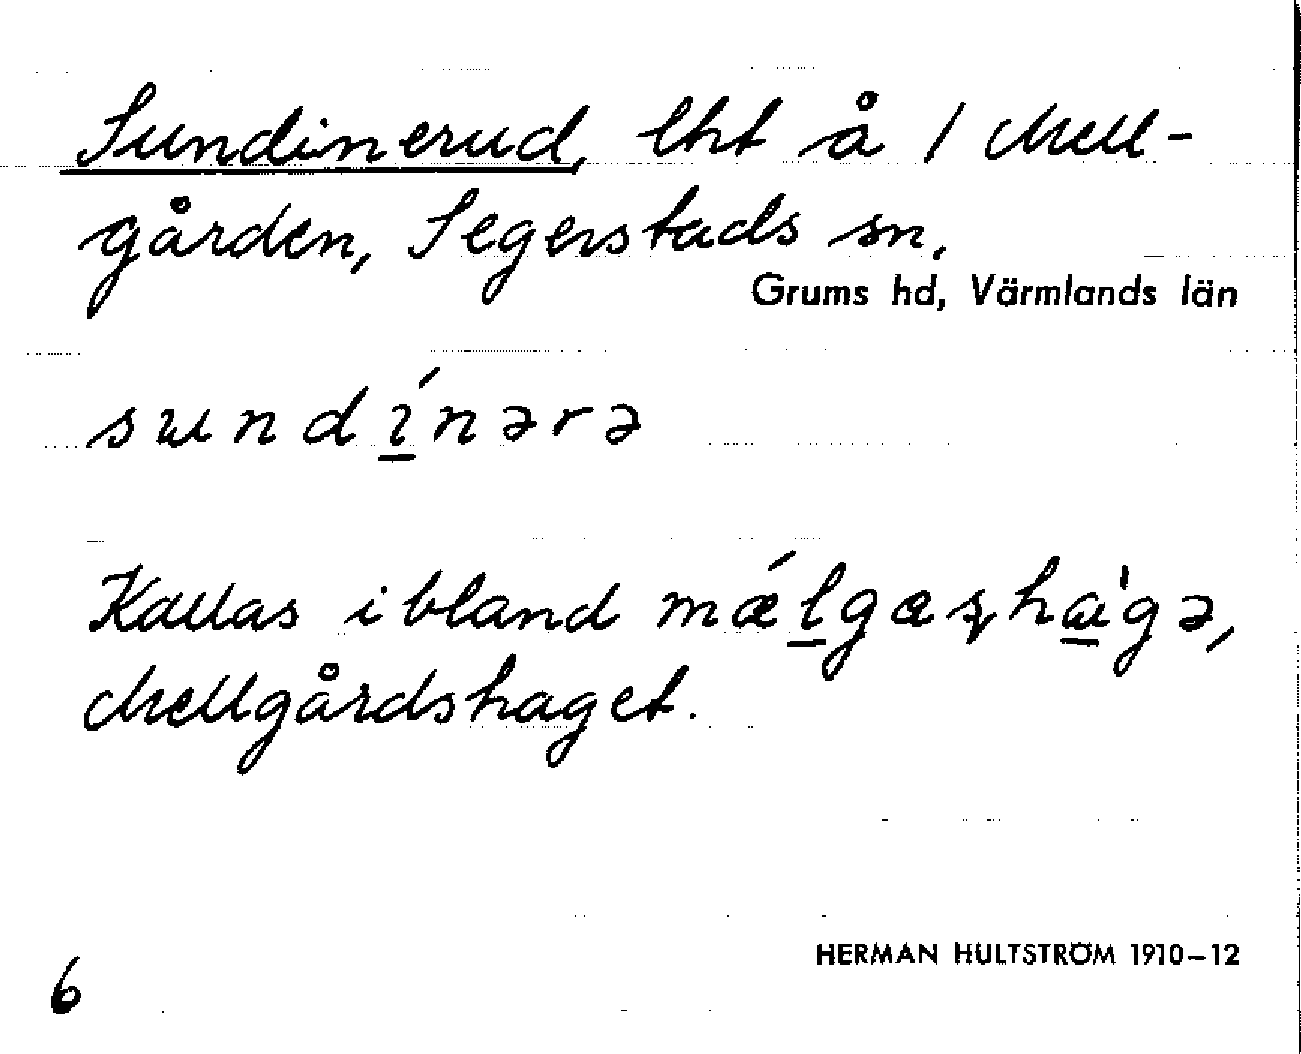 Sundinerud, lht å 1 Mell-
gården, Segerstads sn,
Grums hd, Värmlands län
sundínərə
Kallas ibland mǽlgæʂhàgə,
Mellgårdshaget.
HERMAN HULTSTRÖM 1910–12
6